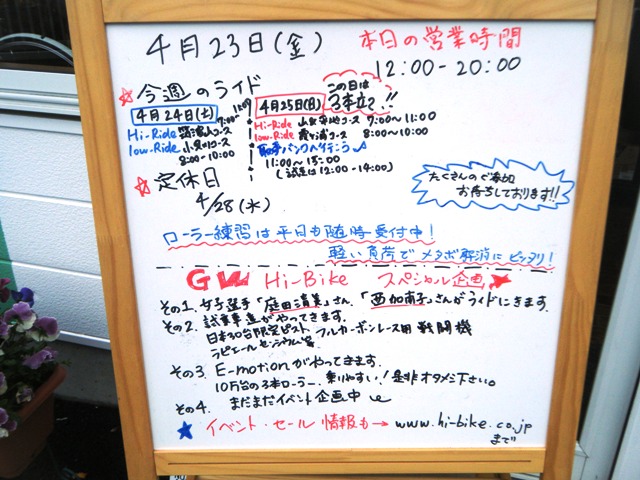 4月23日(金)
本日の営業時間
12:00-20:00
☆今週のライド
4月24日(土)
Hi-Ride コース
low-Ride 小見川コース
8:00-10:00
この日は
3本立て!!
4月25日(日)
Hi-Ride コース 7:00〜11:00
low-Ride 霞ヶ浦コース 8:00〜10:00
取手バンクへ行こう
11:00〜15:00
(試走は12:00-14:00)
☆定休日
4/28(水)
たくさんのご参加
お待ちしております!!
ローラー練習は平日も随時受付中!
軽い負荷でメタボ解消にピッタリ!
GW Hi-Bike スペシャル企画★
その1. 女子選手「庭田清美」さん、「西加南子」さんがライドにきます。
その2. 試乗車達がやってきます。
日本30台限定ピスト、フルカーボンレース用戦闘機
ラピエールゼリウム等
その3 E-motionがやってきます。
10万台の3本ローラー、乗りやすい!是非オタメシ下さい。
その4. まだまだイベント企画中
★イベント・セール情報も→www.hi-bike.co.jp
まで